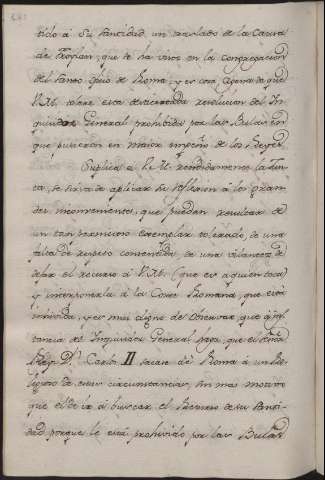 tiló à Su Santidad, un traslado de la Causa
de Froylan, que se ha visto en la congregacion
del Santo Oficio de Roma, y es cosa agena de que
V.M. tolere esta desacertada resolucion del In
quisidor General prohibida por las Bulas con
que pusieron en maior empeño de los Reyes.
Suplica à V.M. rendidamente la Jun
ta, se sirva de aplicar su reflexion à los gran
des inconvenientes, que puedan resultar de
un tan pernicioso exemplar tolerado, de una
falta de respeto consentida, de una
dejar el recurso à V.M. (que es aquien toca)
y interponerla à la Corte Romana, que está
y es muy digno de observar que à ins
tancia del Inquisidor General para, que el Señor
Rey Dn. Carlos II sacase de Roma à un Re
ligioso de estas circunstancias, sin mas motivo
que el de ir à buscar el Recurso de su Santi
dad, porque le está prohivido por las Bulas